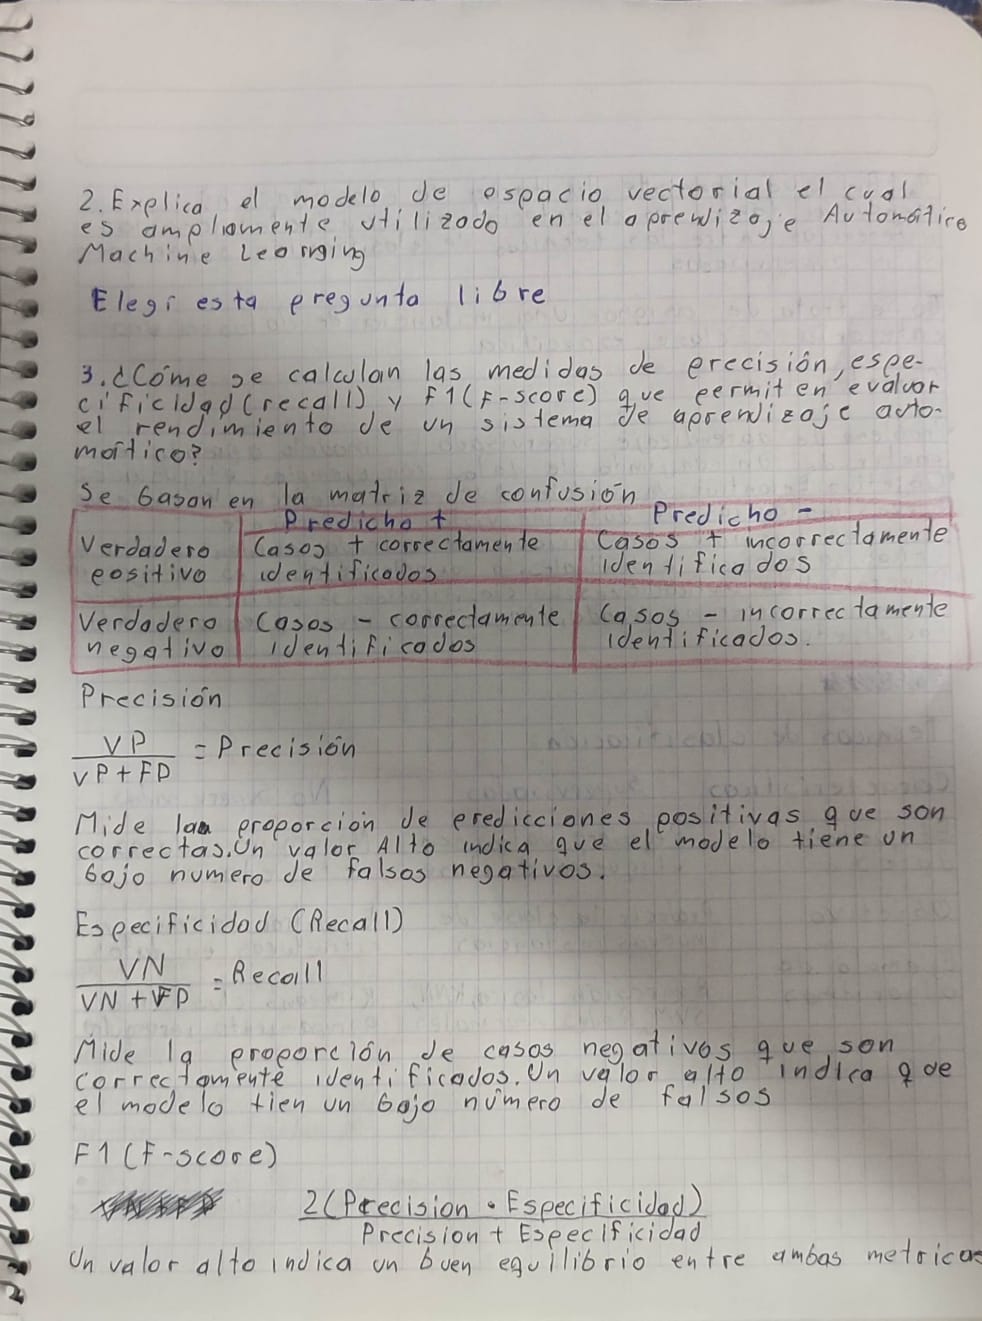 2. Explica el modelo de espacio vectorial el cual
es ampliamente utilizado en el aprendizaje Automático
Machine Learning
Elegi esta pregunta libre
3. ¿Cómo se calculan las medidas de precisión, espe-
cificidad (recall) y F1 (F-score) que permiten evaluar
el rendimiento de un sistema de aprendizaje auto-
mático?
Se basan en la matriz de confusión
Predicho + Predicho -
Verdadero positivo Casos + correctamente identificados Casos + incorrectamente identificados
Verdadero negativo Casos - correctamente identificados Casos - incorrectamente identificados.
Precisión
VP
VP + FP = Precisión
Mide la proporción de predicciones positivas que son
correctas. Un valor Alto indica que el modelo tiene un
bajo numero de falsos negativos.
Especificidad (Recall)
VN
VN + FP = Recall
Mide la proporción de casos negativos que son
correctamente identificados. Un valor alto indica que
el modelo tien un bajo número de falsos
F1 (F-score)
2 (Precision · Especificidad)
Precision + Especificidad
Un valor alto indica un buen equilibrio entre ambas metricas